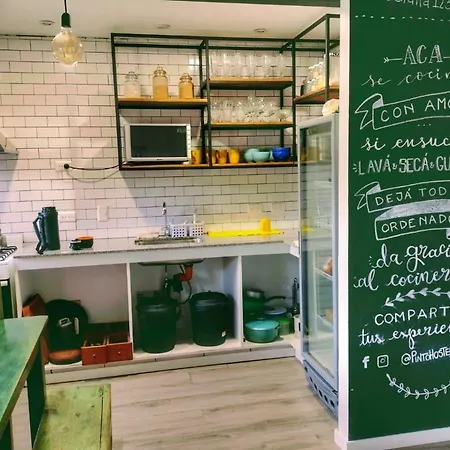 ACA
se cocin
CON AMO
si ensuc
LAVÁ & SECÁ & GU
DEJÁ TOD
ORDENADO
da graci
al cociner
COMPART
tus experien